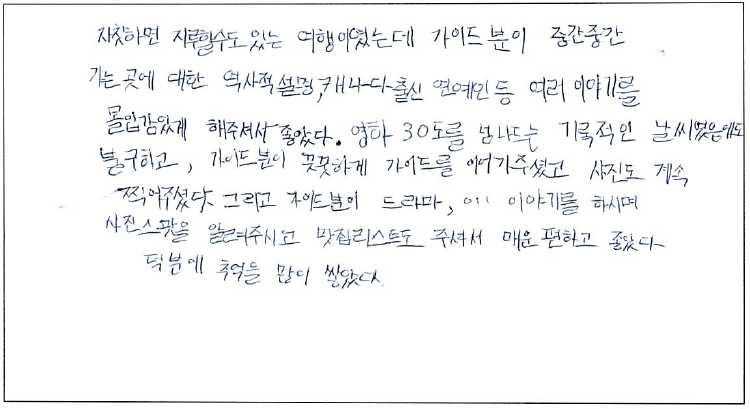 자칫하면 지루할수도 있는 여행이였는데 가이드분이 중간중간
가는 곳에 대한 역사적 설명, 캐나다 출신 연예인 등 여러 이야기를
몰입감있게 해주셔서 좋았다. 영하 30도를 넘나드는 기록적인 날씨였음에도
불구하고, 가이드분이 꿋꿋하게 가이드를 이어가주셨고 사진도 계속
찍어주셨다. 그리고 가이드분이 드라마, 이야기를 하시며
사진스팟을 알려주시고 맛집리스트도 주셔서 매운 편하고 좋았다
덕분에 추억들 많이 쌓았다.